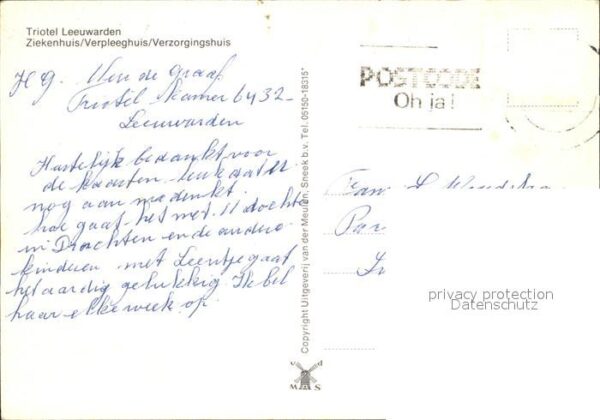 Triotel Leeuwarden
Ziekenhuis/Verpleeghuis/Verzorgingshuis
v/d Graaf
Triotel Kamer 6432-
Leeuwarden
Hartelijk bedankt voor
de kaarten. leuk dat U
nog aan me denkt.
hoe gaat het met U dochter
in Drachten en de andere
kinderen. met Leentje gaat
het aardig gelukkig. Ik bel
haar elke week op.
Copyright Uitgeverij van der Meulen, Sneek b.v. Tel. 05150-18315*
v d
M S
POSTCODE
Oh ja!
Fam.
privacy protection
Datenschutz